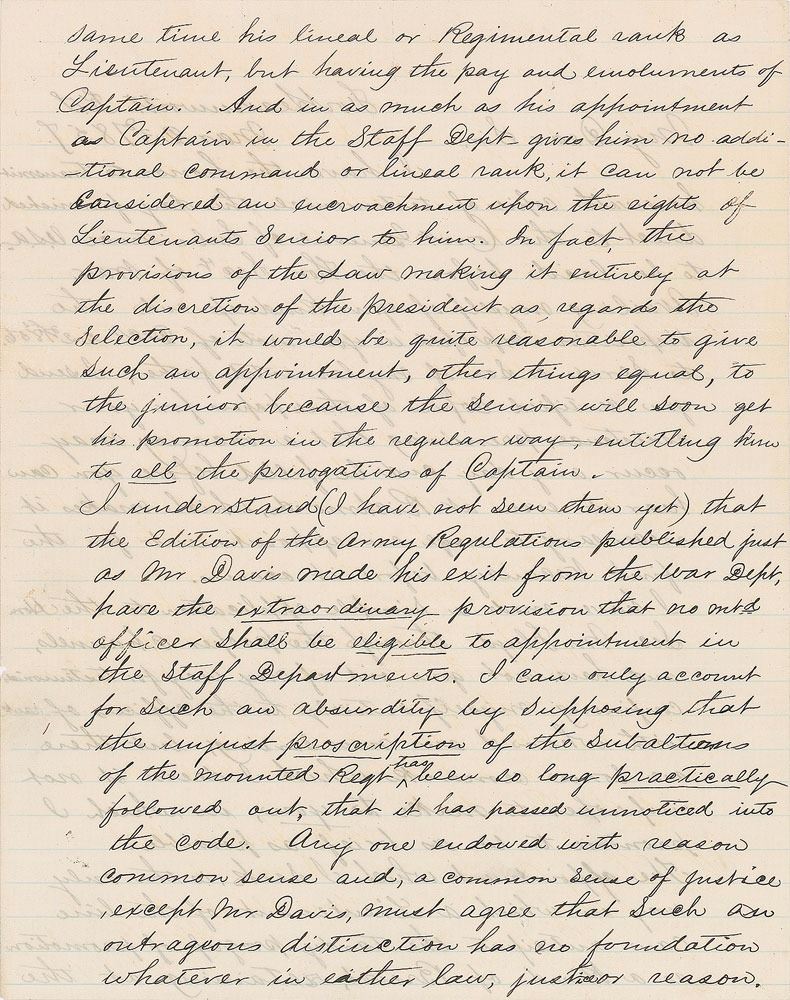 same time his lineal or Regimental rank as
Lieutenant, but having the pay and emoluments of
Captain. And in as much as his appointment
as Captain in the Staff Dept- gives him no addi-
-tional command or lineal rank, it can not be
Considered an encroachment upon the rights of
Lieutenants Senior to him. In fact, the
provisions of the Law making it entirely at
the discretion of the president as, regards the
Selection, it would be quite reasonable to give
Such an appointment, other things equal, to
the junior because the Senior will soon get
his promotion in the regular way, entitling him
to all the prerogatives of Captain.
I understand (I have not seen them yet) that
the Edition of the Army Regulations published just
as Mr Davis made his exit from the War Dept,
have the extraordinary provision that no mtd
officer shall be eligible to appointment in
the Staff Departments. I can only account
for Such an absurdity by Supposing that
the unjust proscription of the Subalterns
of the mounted Regt has been so long practically
followed out, that it has passed unnoticed into
the code. Any one endowed with reason
common sense and, a common Sense of justice
, except Mr Davis, must agree that Such an
outrageous distinction has no foundation
whatever in either law, justice or reason.